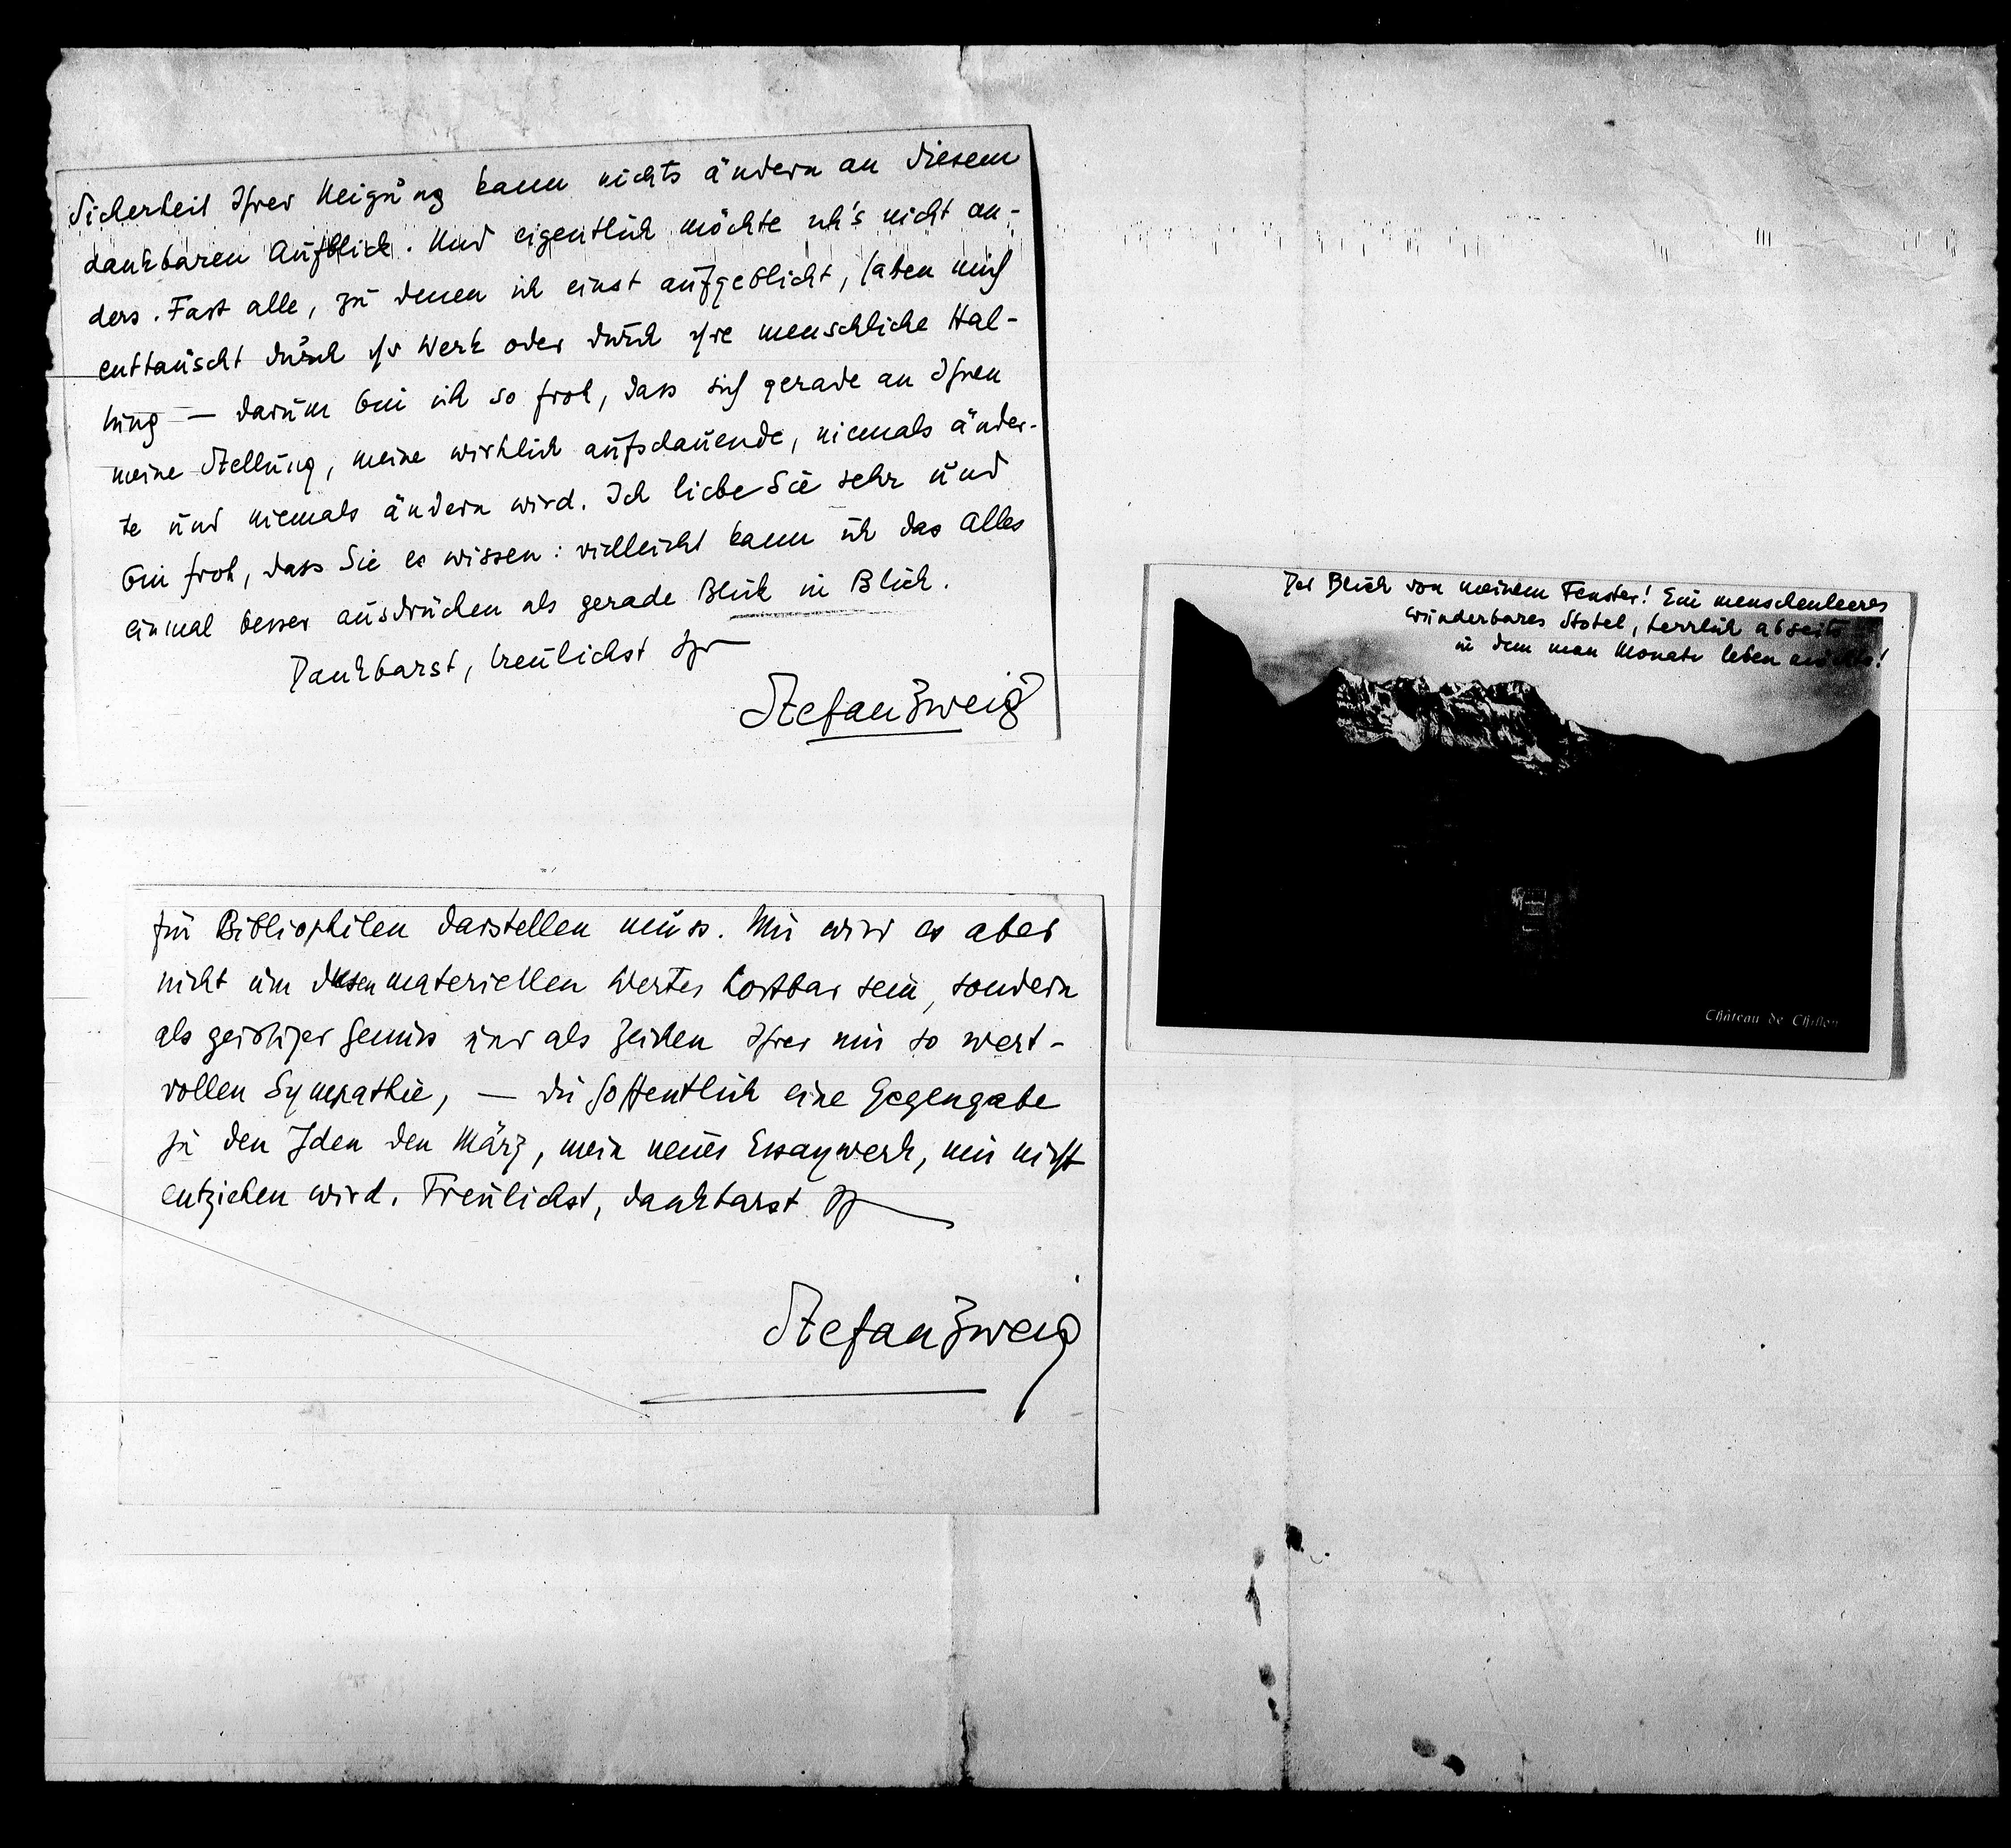 Sicherheit Ihrer Neigung kann nichts ändern an diesem
dankbaren Aufblick. Und eigentlich möchte ich's nicht an-
ders. Fast alle, zu denen ich einst aufgeblickt, haben mich
enttäuscht durch ihr Werk oder durch ihre menschliche Hal-
tung — darum bin ich so froh, dass sich gerade an Ihnen
meine Stellung, meine wirklich aufschauende, niemals änder-
te und niemals ändern wird. Ich liebe Sie sehr und
bin froh, dass Sie es wissen: vielleicht kann ich das alles
einmal besser ausdrücken als gerade Blick in Blick.
Dankbarst, treulichst Ihr
Stefan Zweig
für Bibliophilen darstellen muss. Mir wird es aber
nicht um diesen materiellen Wertes kostbar sein, sondern
als geistiger Genuss und als Zeichen Ihrer mir so wert-
vollen Sympathie, — die hoffentlich eine Gegengabe
zu den Iden den März, mein neues Essaywerk, mir nicht
entziehen wird. Treulichst, dankbarst Ihr
Stefan Zweig
Der Blick von meinem Fenster! Ein menschenleeres
wunderbares Hotel, herrlich abseits
in dem man Monate leben möchte!
Château de Chillon